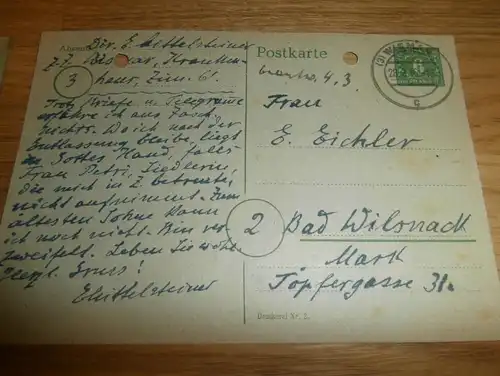 Absender: Dir. E. Mittelsteiner
z.Z. Wismar, Kranken-
haus, Zim. 61.
3
Trotz Briefe u. Telegramme
erfahre ich aus
nichts. Wo ich nach der
Entlassung bleibe, liegt
in Gottes Hand, falls
Frau Petri, Siedlerin,
die mich in Z. betreute,
nicht aufnimmt. Zum
ältesten Sohne kann
ich noch nicht. Bin ver-
zweifelt. Leben Sie wohl
Herzl. Gruss!
EMittelsteiner
Postkarte
4.3.
WISMAR
c
Frau
E. Eichler
2
Bad Wilsnack
Mark
Töpfergasse 31.